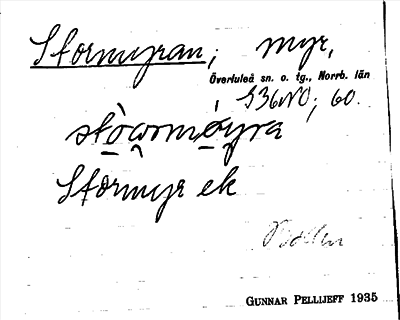 Stormyran; myr,
Överluleå sn. o. tg., Norrb. län
S36NO; 60.
stòwrmøyra
Stormyr ek
GUNNAR PELLIJEFF 1935